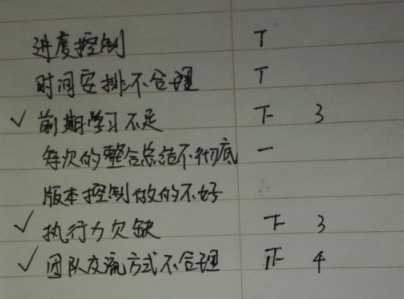 进度控制 T
时间安排不合理 T
✓ 前期学习不足 下 3
每次的整合总结不彻底 一
版本控制做的不好
✓ 执行力欠缺 下 3
✓ 团队交流方式不合理 正 4